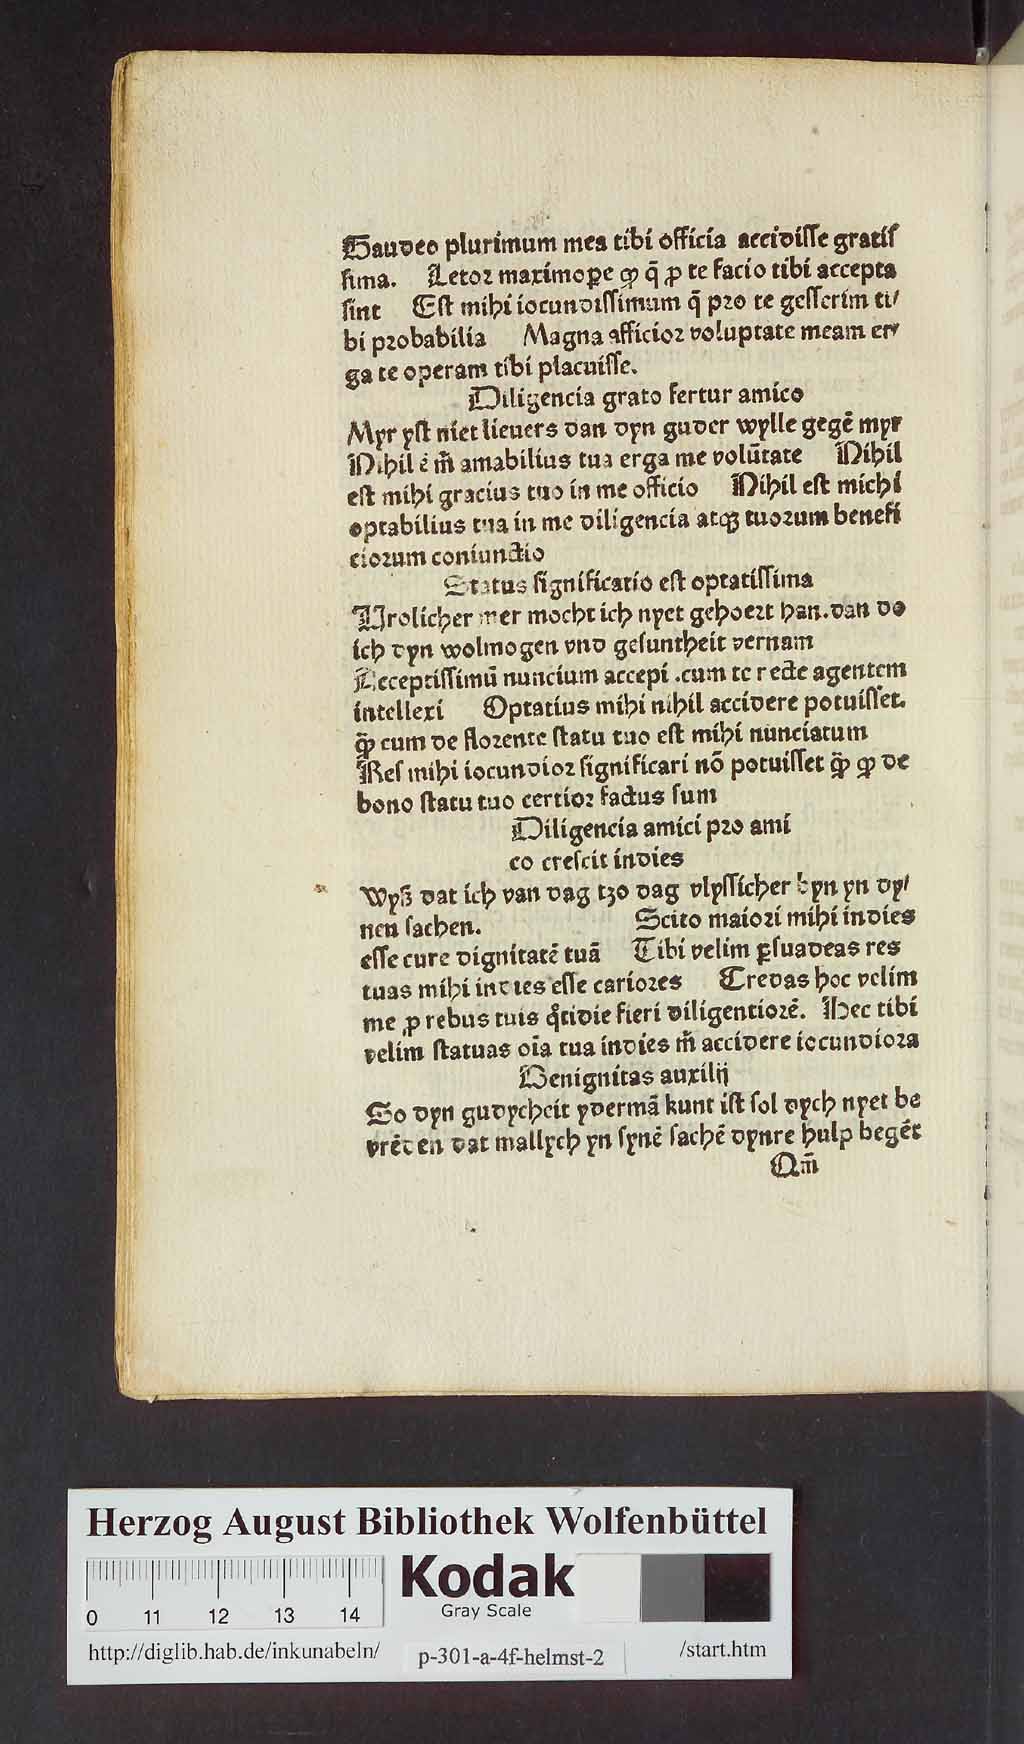 Gaudeo plurimum mea tibi officia accidisse gratis
sima. Letor maximope ꝙ q̄ ꝓ te facio tibi accepta
sint Est mihi iocundissimum q̄ pro te gesserim ti/
bi probabilia Magna afficior voluptate meam er/
ga te operam tibi placuisse.
Diligencia grato fertur amico
Myr yst niet lieuers dan dyn guder wylle gegē myr
Nihil ē m̄ amabilius tua erga me volūtate Nihil
est mihi gracius tuo in me officio Nihil est michi
optabilius tua in me diligencia atqꝫ tuorum benefi
ciorum coniunctio
Status significatio est optatissima
Vrolicher mer mocht ich nyet gehoert han.dan do
ich dyn wolmogen vnd gesuntheit vernam
Acceptissimū nuncium accepi .cum te recte agentem
intellexi Optatius mihi nihil accidere potuisset.
q̄ꝫ cum de florente statu tuo est mihi nunciatum
Res mihi iocundior significari nō potuisset q̄ꝫ ꝙ de
bono statu tuo certior factus sum
Diligencia amici pro ami
co crescit indies
Wyß dat ich van dag tzo dag vlyssicher byn yn dy/
nen sachen. Scito maiori mihi indies
esse cure dignitatē tuā Tibi velim ꝑsuadeas res
tuas mihi indies esse cariores Credas hoc velim
me ꝓ rebus tuis qͥtidie fieri diligentiorē. Hec tibi
velim statuas oīa tua indies m̄ accidere iocundiora
Benignitas auxilij
So dyn gudycheit ydermā kunt ist sol dych nyet be
vrēden dat mallych yn synē sachē dynre hulp begēt
Qm̄
Herzog August Bibliothek Wolfenbüttel
Kodak
Gray Scale
0 11 12 13 14
http://diglib.hab.de/inkunabeln/ p-301-a-4f-helmst-2 /start.htm